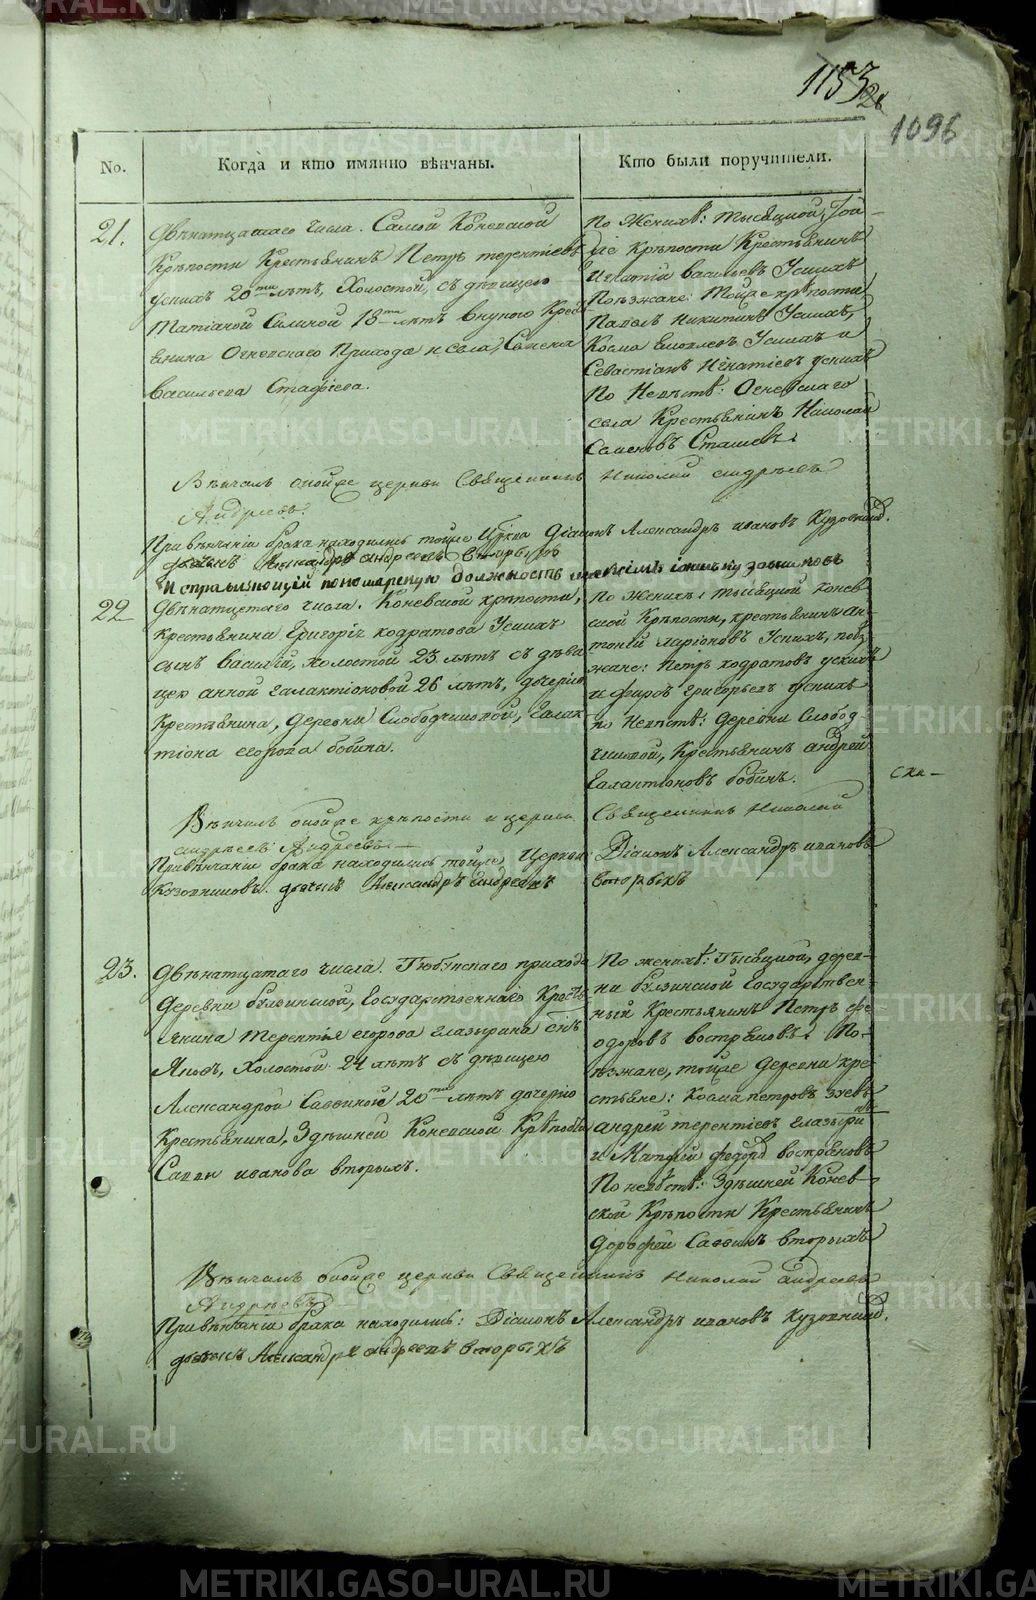 1153
1096
No.
Когда и кто имянно вѣнчаны.
Кто были поручители.
21.
Двѣнатцатаго числа. Самой Коневской
Крѣпости Крестьянинъ Петръ терентіевъ
Усихъ 20ти лѣтъ, Холостой, съ дѣвицею
Татіаной Силиной 18ти лѣтъ внукою Крес
янина Огневскаго Прихода и села, Семена
Васильева
По Женихѣ: тысяцкой, Той
же Крѣпости Крестьянинъ
Игнатій Васильевъ Усихъ
Поезжане: Тойже крѣпости
Павелъ Никитинъ Усихъ,
Козма Усихъ и
Севастіанъ Игнатіевъ усихъ
По Невѣстѣ: Огневскаго
села Крестьянинъ Николай
Семеновъ
Вѣнчалъ оной же церкви Священникъ Николай андрѣевъ
Андреевъ.
При вѣнчаніи брака находились тойже Церкви Діаконъ Александръ ивановъ Кузовник.
дьячекъ Александръ андреевъ вторыхъ
Исправляющій пономарскую должность
22
Двѣнатцетаго числа. Коневской крѣпости,
крестьянина Григоріи кодратова Усихъ
сынъ василій, холостой 23 лѣтъ съ дѣви
цею анной галактіоновой 26 лѣтъ, дочерию
Крестьянина, деревни Слободчиковой, Галак
тіона егорова бобина.
По Женихѣ: тысяцкой конев
ской Крѣпости, крестьянинъ ан
тоній ларіоновъ Усихъ, поѣз
жане: Петръ кодратовъ усихъ
и фиръ григорьевъ усихъ
по Невѣстѣ: деревни Слобод
чиковой, Крестьянинъ андрей
Галактіоновъ бобинъ.
Вѣнчалъ оной же крѣпости и церкви Священникъ Николай
андрѣевъ Андреевъ
При вѣнчаніи брака находились тойже Церкви: Діаконъ Александръ ивановъ
Кузовниковъ. дьячекъ Александръ андреевъ вторыхъ
23.
Двѣнатцатаго числа. прихода
деревни булзинской, Государственнаго Кресть
янина терентія егорова глазырина сынъ
Яковъ, Холостой 24 лѣтъ съ дѣвицею
Александрой Саввиною 20ти лѣтъ дочерию
Крестьянина, Здѣшней Коневской Крѣпости
Саввы иванова вторыхъ.
По женихѣ: Тысяцкой, дерев
ни булзинской Государствен
ный Крестьянинъ Петръ фе
одоровъ востряковъ. По
ѣзжане, тойже деревни кре
стьяне: Козма петровъ зуевъ
андрей терентіевъ глазыри
нъ
и Матфей федоровъ востряковъ
По невѣстѣ: Здѣшней Конев
ской Крѣпости Крестьянинъ
дорофей Саввинъ вторыхъ
Вѣнчалъ оной же церкви Священникъ Николай андреевъ
Андрѣевъ
При вѣнчаніи брака находились: Діаконъ Александръ ивановъ Кузовник.
дьячекъ Александръ андреевъ вторыхъ
METRIKI.GASO-URAL.RU